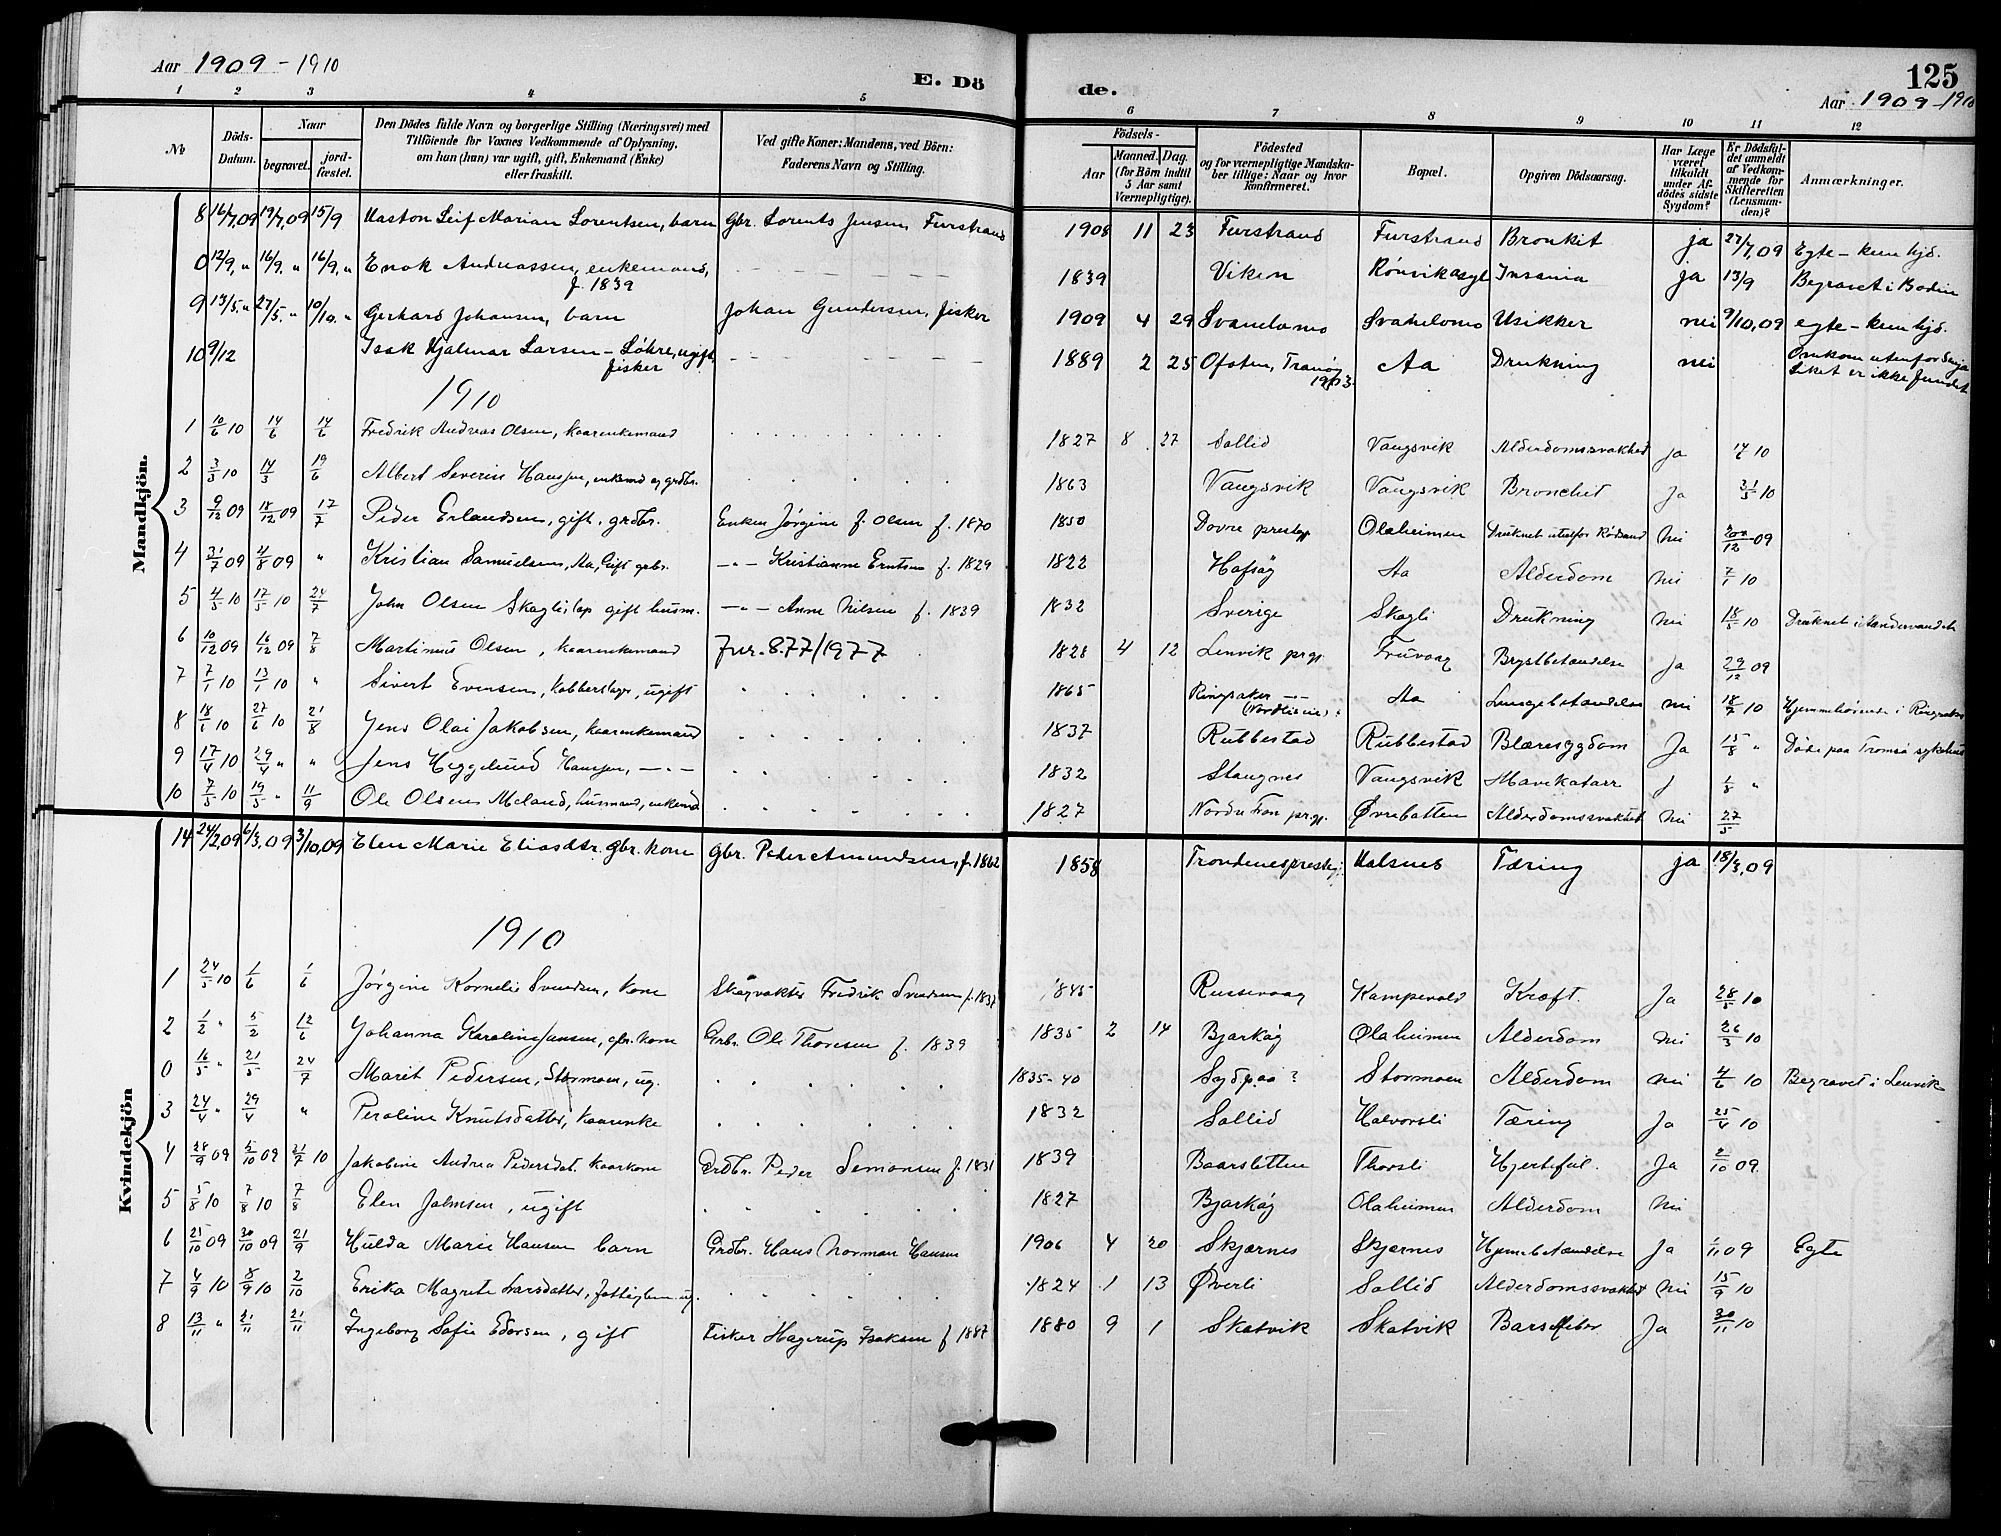 Aar 1909-1910
E. Dö
de.
125
Aar 1909-1910
1 2 3 4 5 6 7 8 9 10 11 12
№ Döds-Datum. Naar begravet. jord-fæstet. Den Dödes fulde Navn og borgerlige Stilling (Næringsvei) med Tilföiende for Voxnes Vedkommende af Oplysning, om han (hun) var ugift, gift, Enkemand (Enke) eller fraskilt. Ved gifte Koner: Mandens, ved Börn: Faderens Navn og Stilling. Födsels- Aar Maaned. Dag. (for Börn indtil 5 Aar samt Værnepligtige). Födested og for værnepligtige Mandska-ber tillige: Naar og hvor konfirmeret. Bopæl. Opgiven Dödsaarsag. Har Læge været tilkaldt under Af-dödes sidste Sygdom? Er Dödsfal-det anmeldt af Vedkom-mende for Skifteretten (Lensman-den)? Anmærkninger.
Mandkjön.
8 16/7,09 19/7,09 15/9 Haston Leif Marian Lorentsen, barn Gbr. Lorents Jensen, Furstrand 1908 11 23 Furstrand Furstrand Bronkit ja 27/7,09 Egte - kun hjd.
0 12/9,„ 16/9,„ 16/9,„ Enok Andreassen, enkemand, f. 1839 1839 Viken Rönvik asyl Insania ja 13/9 Begravet i Bodin
9 13/5,„ 27/5,„ 10/10,„ Gerhard Johansen, barn Johan Gundersen, fisker 1909 4 29 Svanelomo Svanelomo Usikker nei 9/10,09 egte - kun hjd.
10 9/12 Isak Hjalmar Larsen - Löhre, ugift, fisker 1889 2 25 Ofoten, Tranöy 1903 Aa Drukning nei Omkom utenfor Senja Liket er ikke fundet
1910
1 10/6 10 14/6 14/6 Fredrik Andreas Olsen, kaarenkemand 1827 8 27 Sollid Vangsvik Alderdomssvakhed ja 10
2 3/3 10 14/3 19/6 Albert Severin Hansen, enkemd og grdbr. 1863 Vangsvik Vangsvik Bronchit Ja 31/5 10
3 9/12 09 18/12 09 17/7 Peder Erlandsen, gift, grdbr. Enken Jørgine f. Olsen f. 1870 1850 Dovre prestgj. Olaheimen Druknet utenfor Rödsand nei 20/12 09
4 31/7 09 4/8 09 „ Kristian Samuelsen, Aa, Gift grbr. -„- Kristianne Erntsen f. 1829 1822 Hofsøy Aa Alderdom nei 7/1 10
5 4/5 10 17/5 10 24/7 John Olsen Skaglislap gift husm. -„- Anne Nilsen f. 1839 1832 Sverige Skogli Drukning nei 18/5 10 Druknet i Aandervandet
6 10/12 09 16/12 09 7/8 Martinus Olsen, kaarenkemand Jnr. 877/1977 1828 4 12 Lenvik prgj. Fruvaag Brystbetændelse Ja 29/12 09
7 7/1 10 13/1 10 „ Sivert Evensen, kobberslager, ugift 1865 Ringsaker -„- (Nordlien) Aa Lungebetændelse nei 18/7 10 Hjemmehörende i Ringsaker
8 18/6 10 27/6 10 21/8 Jens Olai Jakobsen, kaarenkemand 1837 Rubbestad Rubbestad Blæresygdom Ja 15/8 „ Döde paa Tromsö sykehus
9 17/4 10 29/4 „ „ Jens Heggelund Hansen, -„- 1832 Stangnes Vangsvik Mavekatarr J 1/8 „
10 7/5 10 19/5 „ 11/9 Ole Olsen Meland, husmand, enkemd 1827 Nordre Fron prgj. Øvrebotten Alderdomssvakhet nei 27/5
Kvindekjön
14 24/2,09 6/3,09 3/10,09 Elen Marie Eliasdtr. gbr. kone Gbr. Peder Amundsen, f. 1862 1858 Trondenes prestgj. Halsnes Tæring ja 18/3,09
1910
1 24/5 10 1/6 1/6 Jørgine Kornelie Svendsen, kone Skogvakter Fredrik Svendsen f. 1837 1845 Russevaag Kampevold Kræft. Ja 28/5 10
2 1/2 „ 5/2 12/6 Johanna Karoline Jansen, gbr. kone Grbr. Ole Thoresen f. 1839 1835 2 14 Bjarkøy Olaheimen Alderdom nei 26/3 10
0 16/5 „ 21/5 24/7 Marit Pedersen, Stormoen, ug. 1835-40 Sydpaa? Stormoen Alderdom nei 4/6 10 Begravet i Lenvik
3 24/4 „ 29/4 „ Peroline Knutsdatter, kaarenke 1832 Sollid Halvorsli Tæring Ja 25/4 10
4 28/9 09 5/10 09 21/7 10 Jakobine Andrea Pedersdat. kaarkone Grdbr. Peder Simonsen f. 1831 1839 Baarsletten Thorsli Hjertefeil. Ja 2/10 09.
5 5/8 10 7/8 10 7/8 Elen Johnsen, ugift 1827 Bjarkøy Olaheimen Alderdom nei
6 25/10 09 30/10 09 21/9 Hulda Marie Hansen barn Grdbr. Hans Norman Hansen 1906 4 20 Skjærnes Skjærnes Hjernebetændelse Ja 1/11 09 Egte
7 4/9 10 8/9 10 2/10 Erika Magrete Larsdatter, fattiglem ug. 1824 1 13 Øverli Sollid Alderdomssvakhed nei 15/9 10
8 13/11 „ 21/11 21/11 Ingeborg Sofie Edorsen, gift Fisker Hagerup Isaksen f. 1887 1880 9 1 Skatvik Skatvik Barselfeber Ja 30/11 10